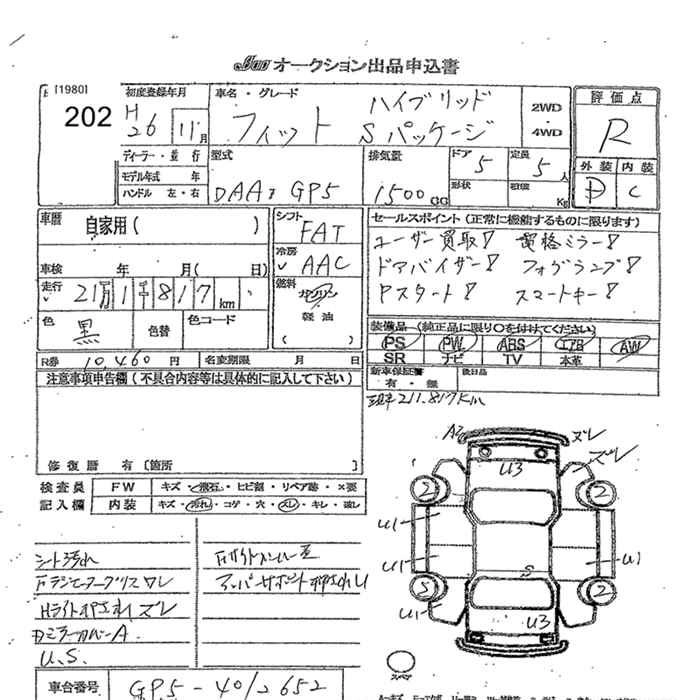 オークション出品申込書
[1980]
202
初度登録年月
H26 11月
車名・グレード
フィット ハイブリッド
Sパッケージ
2WD
・
4WD
評価点
R
ディーラー・並行
モデル年式 年
ハンドル 左・右
型式
DAA GP5
排気量
1500 CC
ドア 5
定員 5人
形状
積載 Kg
外装 内装
D C
車歴 自家用( )
シフト FAT
セールスポイント(正常に機能するものに限ります)
ユーザー買取!
ドアバイザー! フォグランプ!
Pスタート! スマートキー!
車検 年 月( 日)
冷房 AAC
走行 21万1千817km
燃料 ガソリン
軽油
( )
色 黒 色替 色コード
装備品(純正品に限り○を付けてください)
PS PW ABS エアB AW
SR ナビ TV 本革
R券 10,460円 名変期限 月 日
新車保証書 後日品
有・無
注意事項申告欄(不具合内容等は具体的に記入して下さい)
現車 211,817km
修復歴 有〔箇所 〕
検査員 FW キズ・飛石・ヒビ割・リペア跡・×要
記入欄 内装 キズ・汚れ・コゲ・穴・スレ・キレ・破レ
A2 ズレ
ズレ
U3
2 2
U1
U1 U1
S
5 2
U1
U3
スペア
シート汚れ
Fラジエータークリスワレ
Hライトオサれズレ
Dミラーカバー A
U.S.
FサイドメンバーE
アッパーサポート押されU
車台番号 GP5-4012652